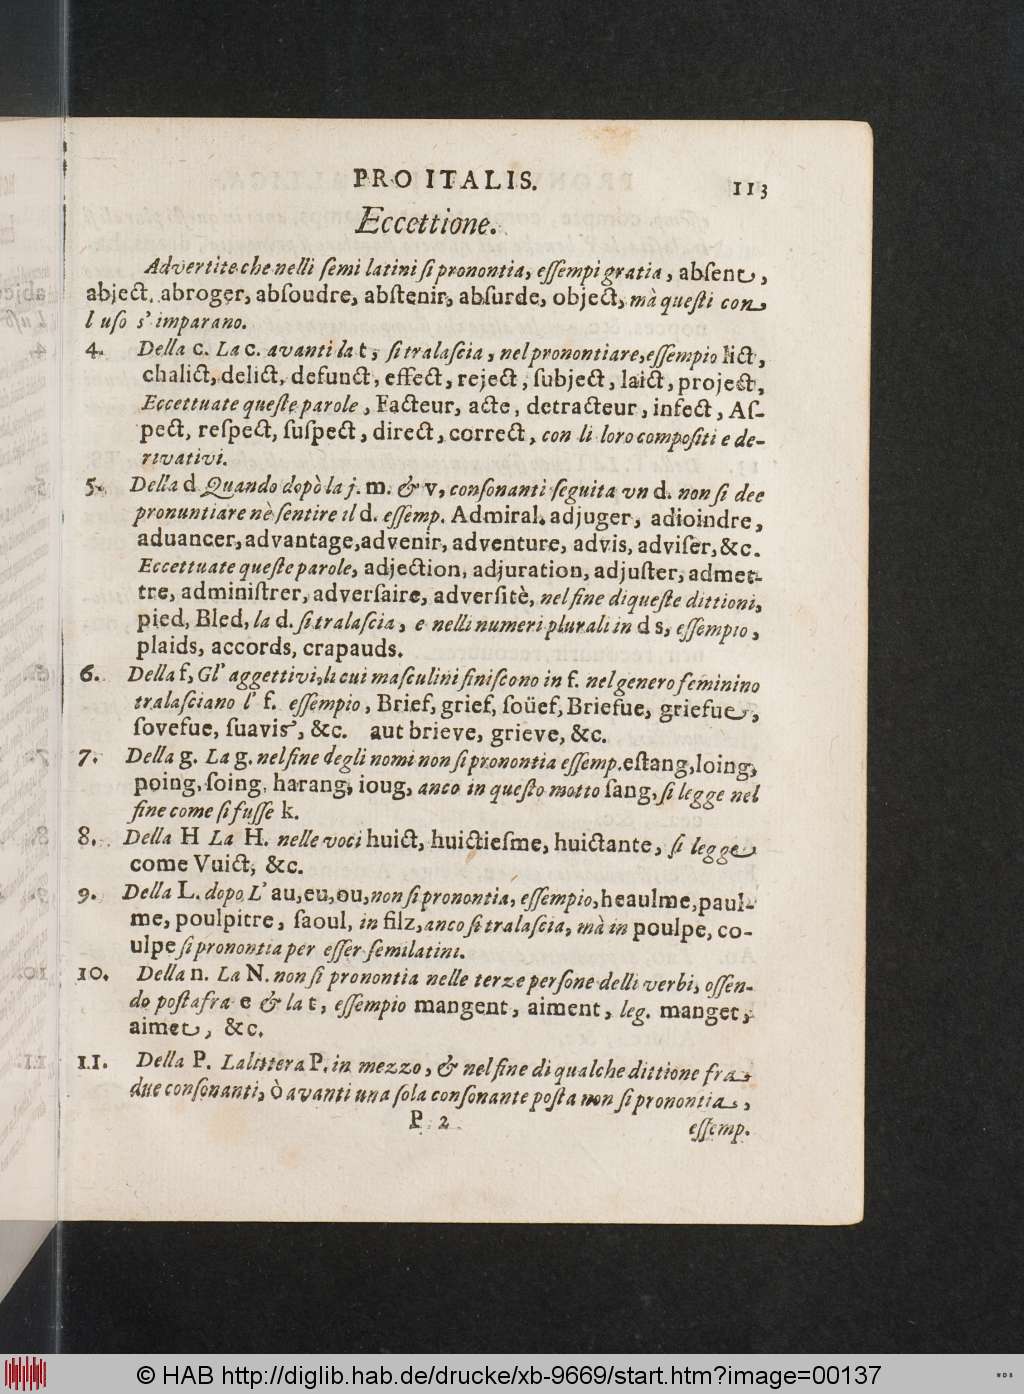 PRO ITALIS.
113
Eccettione.
Advertite che nelli ſemi latini ſi pronontia, eſſempi gratia, abſent,
abject, abroger, abſoudre, abſtenir, abſurde, object, mà queſti con
l uſo s' imparano.
4. Della c. La c. avanti la t, ſi tralaſcia, nel pronontiare, eſſempio lict,
chalict, delict, defunct, effect, reject, ſubject, laict, project,
Eccettuate queſte parole, Facteur, acte, detracteur, infect, Aſ-
pect, reſpect, ſuſpect, direct, correct, con li loro compoſiti e de-
rivativi.
5. Della d Quando dopò la j. m. & v, conſonanti ſeguita vn d. non ſi dee
pronuntiare nè ſentire il d. eſſemp. Admiral, adjuger, adioindre,
aduancer, advantage, advenir, adventure, advis, adviſer, &c.
Eccettuate queſte parole, adjection, adjuration, adjuſter, admet-
tre, adminiſtrer, adverſaire, adverſitè, nel fine di queſte dittioni,
pied, Bled, la d. ſi tralaſcia, e nelli numeri plurali in d s, eſſempio,
plaids, accords, crapauds.
6. Della f, Gl' aggettivi, li cui maſculini finiſcono in f. nel genero feminino
tralaſciano l' f. eſſempio, Brief, grief, ſoüef, Briefue, griefue,
ſovefue, ſuavis, &c. aut brieve, grieve, &c.
7. Della g. La g. nel fine degli nomi non ſi pronontia eſſemp. eſtang, loing,
poing, ſoing, harang, ioug, anco in queſto motto ſang, ſi legge nel
fine come ſi fuſſe k.
8. Della H La H. nelle voci huict, huictieſme, huictante, ſi legge
come Vuict, &c.
9. Della L. dopo L' au, eu, ou, non ſi pronontia, eſſempio, heaulme, paul-
me, poulpitre, ſaoul, in filz, anco ſi tralaſcia, mà in poulpe, co-
ulpe ſi pronontia per eſſer ſemilatini.
10. Della n. La N. non ſi pronontia nelle terze perſone delli verbi, oſſen-
do poſta fra e & la t, eſſempio mangent, aiment, leg. manget,
aimet, &c.
11. Della P. La littera P. in mezzo, & nel fine di qualche dittione fra
due conſonanti, ò avanti una ſola conſonante poſta non ſi pronontia,
P 2
eſſemp.
© HAB http://diglib.hab.de/drucke/xb-9669/start.htm?image=00137